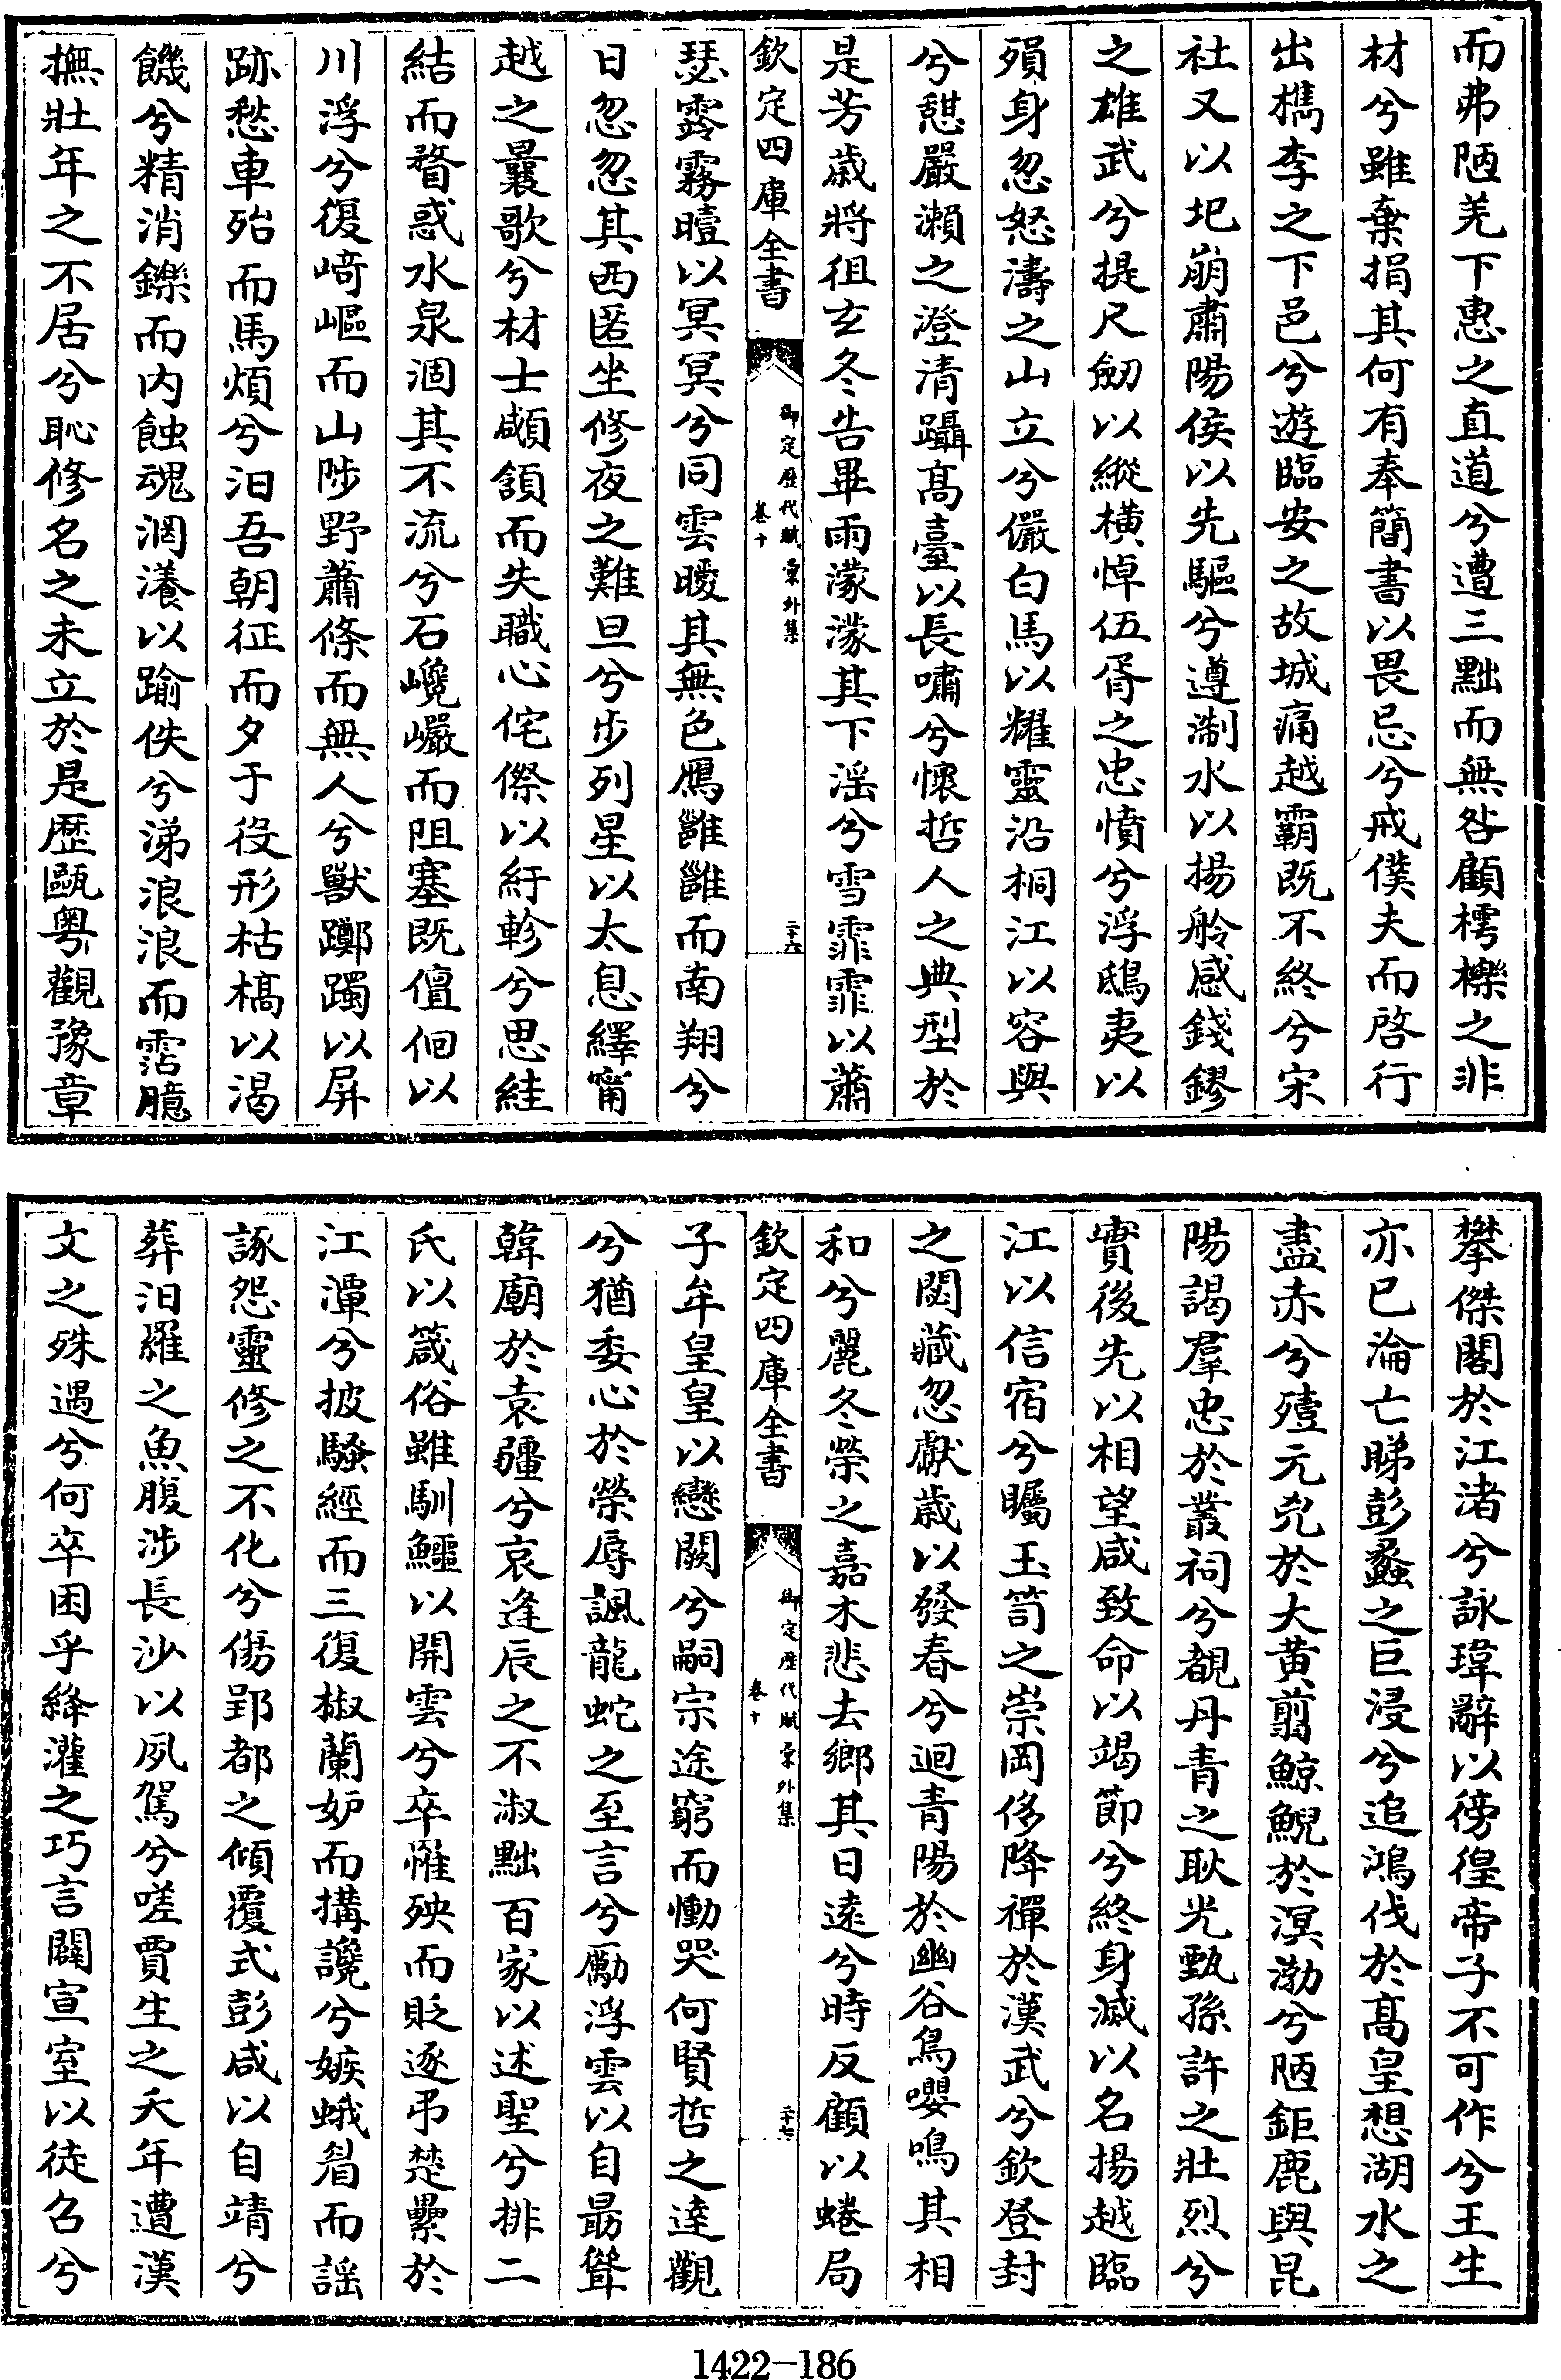 而弗陋羌下惠之直道兮遭三黜而無咎顧樗櫟之非
材兮雖棄捐其何有奉簡書以畏忌兮戒僕夫而啓行
出檇李之下邑兮遊臨安之故城痛越霸既不終兮宋
社又以圯崩肅陽侯以先驅兮遵淛水以揚舲感錢鏐
之雄武兮提尺劒以縱橫悼伍胥之忠憤兮浮鴟夷以
殞身忽怒濤之山立兮儼白馬以耀靈沿桐江以容與
兮憇嚴瀨之澄清躡髙臺以長嘯兮懷哲人之典型於
是芳歲將徂玄冬告畢雨濛濛其下滛兮雪霏霏以蕭
欽定四庫全書
御定歴代賦彙外集
卷十
二十六
瑟霧霧曀以冥冥兮同雲曖其無色鴈雝雝而南翔兮
日忽忽其西匿坐修夜之難旦兮步列星以太息繹甯
越之曩歌兮材士顑頷而失職心侘傺以紆軫兮思絓
結而瞀惑水泉涸其不流兮石巉巗而阻塞既儃佪以
川浮兮復崎嶇而山陟野蕭條而無人兮獸躑躅以屏
跡愁車殆而馬煩兮汨吾朝征而夕于役形枯槁以渴
饑兮精消鑠而内蝕魂罔瀁以踰佚兮涕浪浪而霑臆
撫壯年之不居兮恥修名之未立於是歴甌粤觀豫章
攀傑閣於江渚兮詠瑋辭以徬徨帝子不可作兮王生
亦已淪亡睇彭蠡之巨浸兮追鴻伐於髙皇想湖水之
盡赤兮殪元兇於大黄翦鯨鯢於溟渤兮陋鉅鹿與昆
陽謁羣忠於叢祠兮覩丹青之耿光甄孫許之壯烈兮
實後先以相望咸致命以竭節兮終身滅以名揚越臨
江以信宿兮矚玉笥之崇岡侈降禪於漢武兮欽登封
之閟藏忽獻歲以發春兮迴青陽於幽谷鳥嚶鳴其相
和兮麗冬榮之嘉木悲去鄉其日遠兮時反顧以蜷局
欽定四庫全書
御定歴代賦彙外集
卷十
二十七
子牟皇皇以戀闕兮嗣宗途窮而慟哭何賢哲之達觀
兮猶委心於榮辱諷龍蛇之至言兮勵浮雲以自勗聳
韓廟於袁疆兮哀逢辰之不淑黜百家以述聖兮排二
氏以箴俗雖馴鱷以開雲兮卒罹殃而貶逐弔楚纍於
江潭兮披騷經而三復椒蘭妒而搆讒兮嫉蛾眉而謡
諑怨靈修之不化兮傷郢都之傾覆式彭咸以自靖兮
葬汨羅之魚腹涉長沙以夙駕兮嗟賈生之夭年遭漢
文之殊遇兮何卒困乎絳灌之巧言闢宣室以徒召兮
1422-186